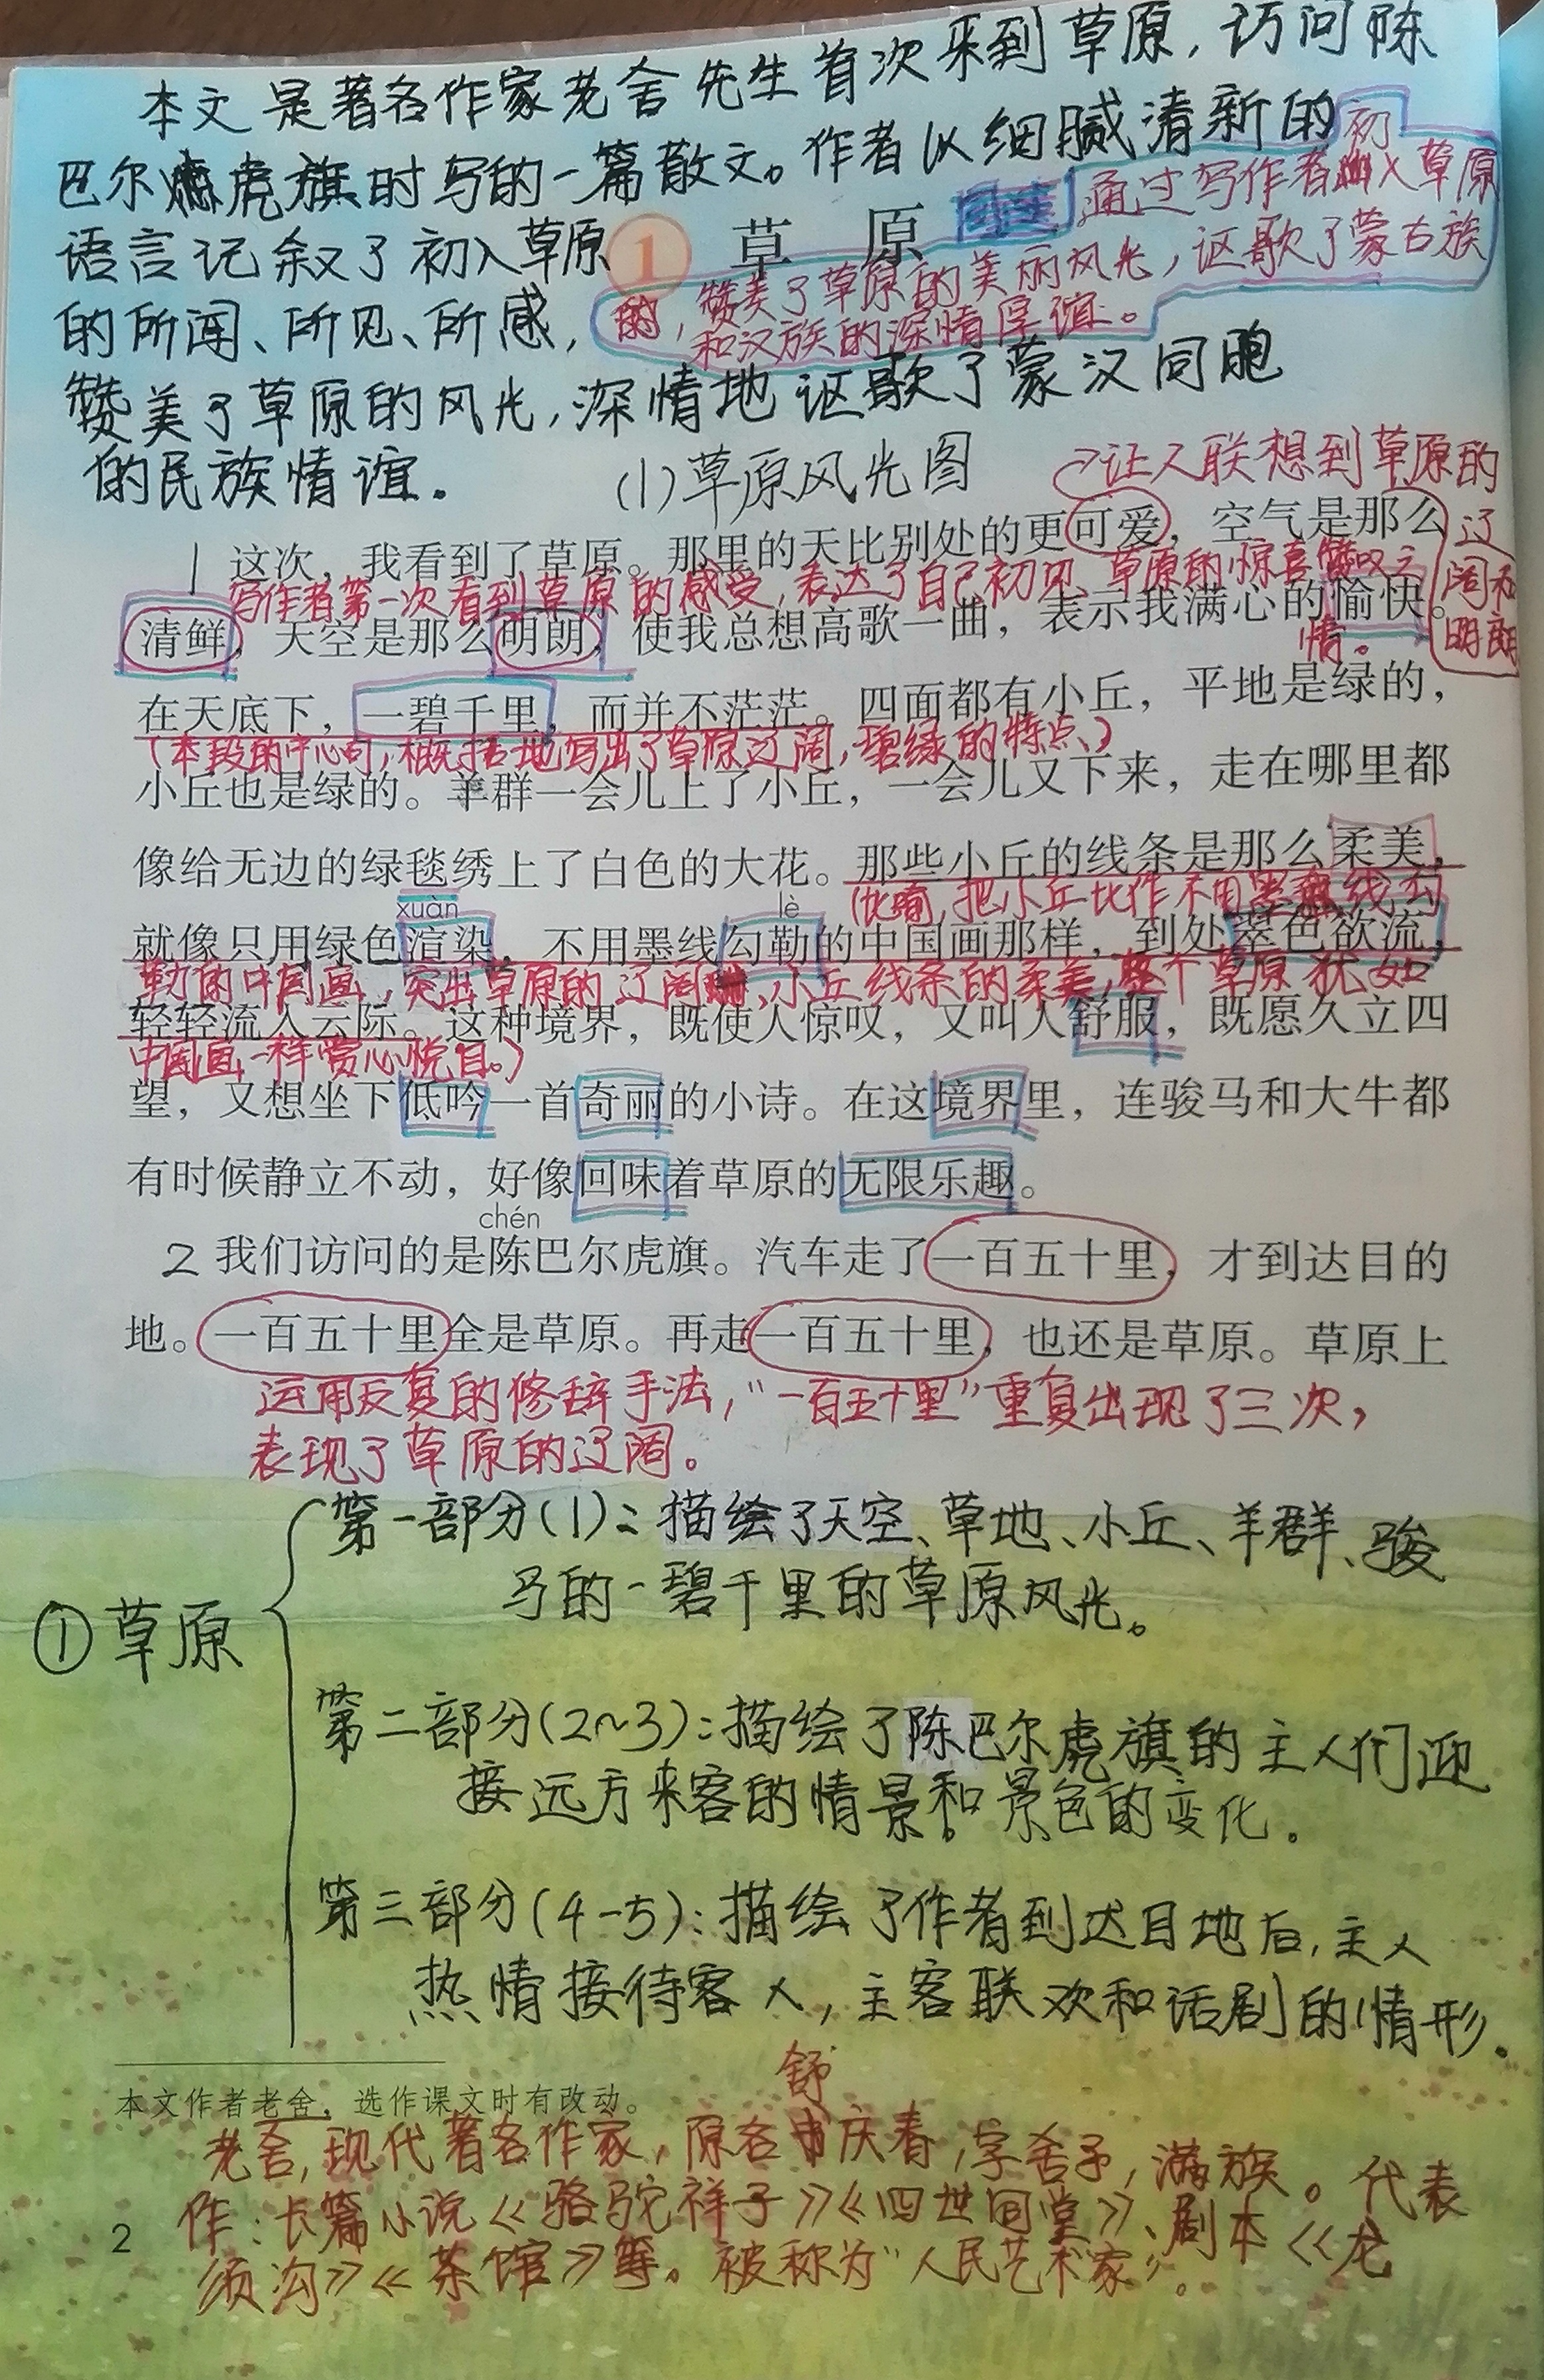 本文是著名作家老舍先生首次来到草原，访问陈
巴尔虎旗时写的一篇散文。作者以细腻清新的
语言记叙了初入草原
的所闻、所见、所感，
赞美了草原的风光，深情地讴歌了蒙汉同胞
的民族情谊。
1 草原
初
通过写作者入草原
的，赞美了草原的美丽风光，讴歌了蒙古族
和汉族的深情厚谊。
(1)草原风光图
让人联想到草原的
辽
阔和
明朗
1 这次，我看到了草原。那里的天比别处的更可爱，空气是那么
写作者第一次看到草原的感受，表达了自己初见草原的惊喜赞叹之
情。
清鲜，天空是那么明朗，使我总想高歌一曲，表示我满心的愉快。
在天底下，一碧千里，而并不茫茫。四面都有小丘，平地是绿的，
(本段的中心句，概括地写出了草原辽阔，碧绿的特点)
小丘也是绿的。羊群一会儿上了小丘，一会儿又下来，走在哪里都
像给无边的绿毯绣上了白色的大花。那些小丘的线条是那么柔美，
(比喻，把小丘比作不用墨线勾
xuàn lè
就像只用绿色渲染，不用墨线勾勒的中国画那样，到处翠色欲流，
勒的中国画，突出草原的辽阔、小丘线条的柔美，整个草原犹如
轻轻流入云际。这种境界，既使人惊叹，又叫人舒服，既愿久立四
中国画一样赏心悦目。)
望，又想坐下低吟一首奇丽的小诗。在这境界里，连骏马和大牛都
有时候静立不动，好像回味着草原的无限乐趣。
chén
2 我们访问的是陈巴尔虎旗。汽车走了一百五十里，才到达目的
地。一百五十里全是草原。再走一百五十里，也还是草原。草原上
运用反复的修辞手法，“一百五十里”重复出现了三次，
表现了草原的辽阔。
①草原
第一部分(1)：描绘了天空、草地、小丘、羊群、骏
马的一碧千里的草原风光。
第二部分(2~3)：描绘了陈巴尔虎旗的主人们迎
接远方来客的情景和景色的变化。
第三部分(4-5)：描绘了作者到达目地后，主人
热情接待客人，主客联欢和话剧的情形。
本文作者老舍，选作课文时有改动。
舒
老舍，现代著名作家，原名庆春，字舍予，满族。代表
作：长篇小说《骆驼祥子》《四世同堂》、剧本《龙
须沟》《茶馆》等。被称为“人民艺术家”。
2